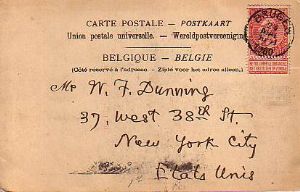 CARTE POSTALE – POSTKAART
Union postale universelle. – Wereldpostvereeniging
BELGIQUE – BELGIE
(Côté réservé à l'adresse. – Zijde voor het adres alleen.)
Mr W. F. Dunning
37, West 38th St.
New York City
Etats Unis
BRUGES